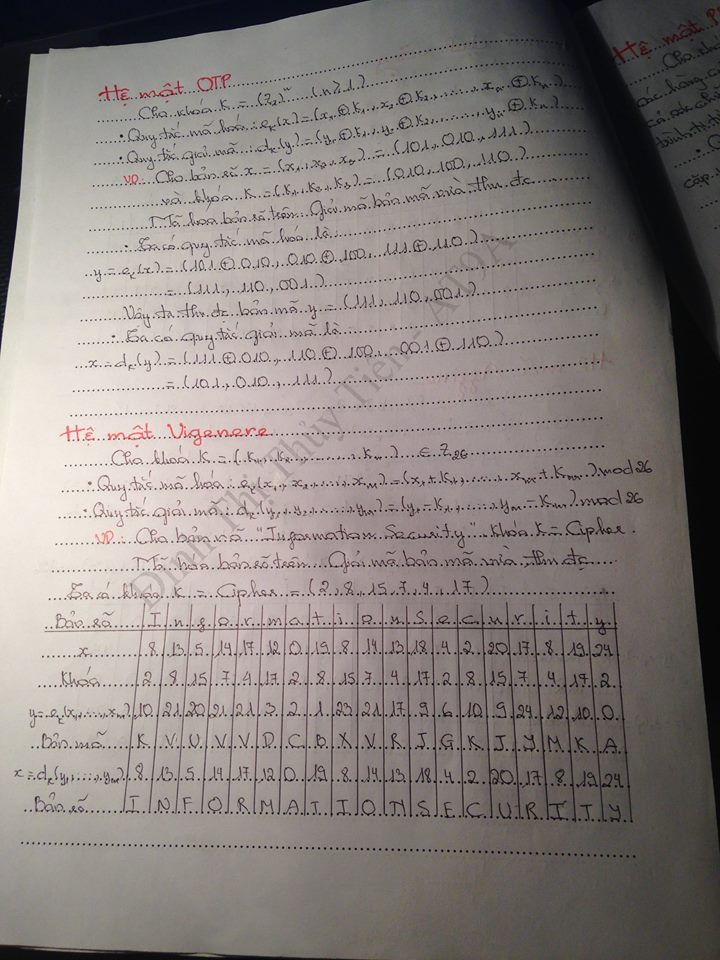 Hệ mật OTP
Cho khóa K = (Z₂)ⁿ (n ≥ 1)
• Quy tắc mã hóa: eₖ(x) = (x₁ ⊕ k₁, x₂ ⊕ k₂, ......, xₙ ⊕ kₙ)
• Quy tắc giải mã: dₖ(y) = (y₁ ⊕ k₁, y₂ ⊕ k₂, ......, yₙ ⊕ kₙ)
VD: Cho bản rõ x = (x₁, x₂, x₃) = (101, 010, 111)
và khóa K = (k₁, k₂, k₃) = (010, 100, 110)
Mã hóa bản rõ trên. Giải mã bản mã vừa thu đc
• Ta có quy tắc mã hóa là:
y = eₖ(x) = (101 ⊕ 010, 010 ⊕ 100, 111 ⊕ 110)
= (111, 110, 001)
Vậy ta thu đc bản mã y = (111, 110, 001)
• Ta có quy tắc giải mã là
x = dₖ(y) = (111 ⊕ 010, 110 ⊕ 100, 001 ⊕ 110)
= (101, 010, 111)
Hệ mật Vigenere
Cho khóa K = (k₁, k₂, ......, kₘ) ∈ Z₂₆
• Quy tắc mã hóa: eₖ(x₁, x₂, ......, xₘ) = (x₁ + k₁, ......, xₘ + kₘ) mod 26
• Quy tắc giải mã: dₖ(y₁, y₂, ......, yₘ) = (y₁ - k₁, ......, yₘ - kₘ) mod 26
VD: Cho bản rõ "Information Security" khóa K = Cipher.
Mã hóa bản rõ trên. Giải mã bản mã vừa thu đc
Ta có khóa K = Cipher = (2, 8, 15, 7, 4, 17)
Bản rõ I n f o r m a t i o n S e c u r i t y
x 8 13 5 14 17 12 0 19 8 14 13 18 4 2 20 17 8 19 24
Khóa 2 8 15 7 4 17 2 8 15 7 4 17 2 8 15 7 4 17 2
y = eₖ(x₁, ..., xₘ) 10 21 20 21 21 3 2 1 23 21 17 9 6 10 9 24 12 10 0
Bản mã K V U V V D C B X V R J G K J Y M K A
x = dₖ(y₁, ..., yₘ) 8 13 5 14 17 12 0 19 8 14 13 18 4 2 20 17 8 19 24
Bản rõ I N F O R M A T I O N S E C U R I T Y
Đinh Thị Thủy Tiên
Hệ mật
Cho khóa